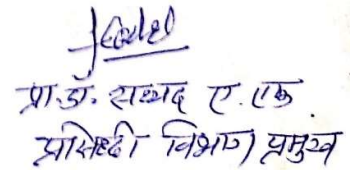 प्रा.डॉ. सय्यद ए.एफ.
प्रसिध्दी विभाग प्रमुख